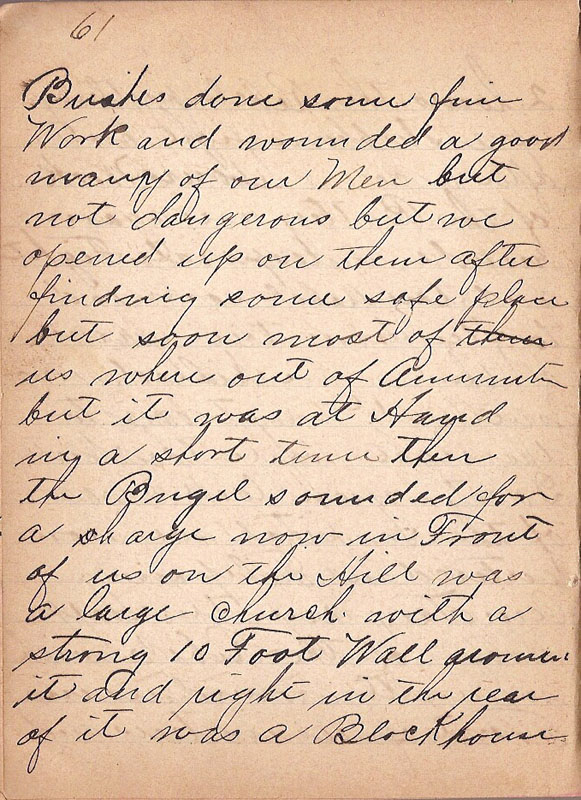 61
Bushes done some fine
Work and wounded a good
many of our Men but
not dangerous but we
opened up on them after
finding some safe place
but soon most of them
us where out of Amunition
but it was at Hand
in a short time then
the Bugel sounded for
a charge now in Front
of us on the Hill was
a large church with a
strong 10 Foot Wall around
it and right in the rear
of it was a Blockhouse